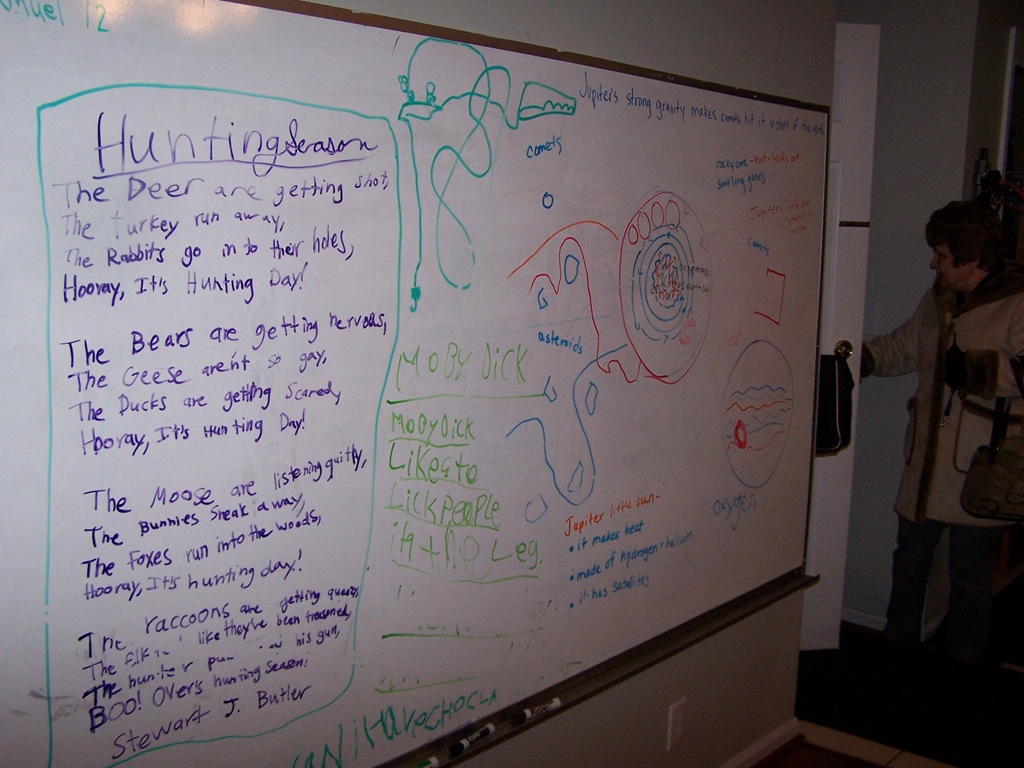 12
Hunting Season
The Deer are getting shot,
The Turkey run away,
The Rabbits go in to their holes,
Hooray, It's Hunting Day!
The Bears are getting nervous,
The Geese aren't so gay,
The Ducks are getting Scared,
Hooray, It's Hunting Day!
The Moose are listening quitly,
The Bunnies Sneak away,
The Foxes run into the woods,
Hooray, It's hunting day!
The raccoons are getting
The like they've been
The hunter his gun,
BOO! Over's hunting Season!
Stewart J. Butler
MOBY DICK
MOBY DICK
Like to
Lick people
Leg.
Jupiter's strong gravity makes comets hit it instead of the earth
comets
asteroids
rocky core - hot - leaks out
swirling gases
Jupiter-
comets
oxygen
Jupiter little sun-
• it makes heat
• made of hydrogen + helium
• it has satellites